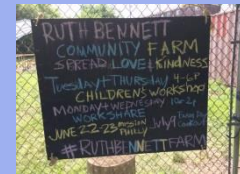 RUTH BENNETT
COMMUNITY FARM
SPREAD LOVE & KINDNESS
Tuesday + Thursday 4-6P
CHILDREN'S WORKSHOP
MONDAY + WEDNESDAY 10-2
WORKSHARE
JUNE 22-23 MISSION PHILLY
July 9
#RUTHBENNETTFARM